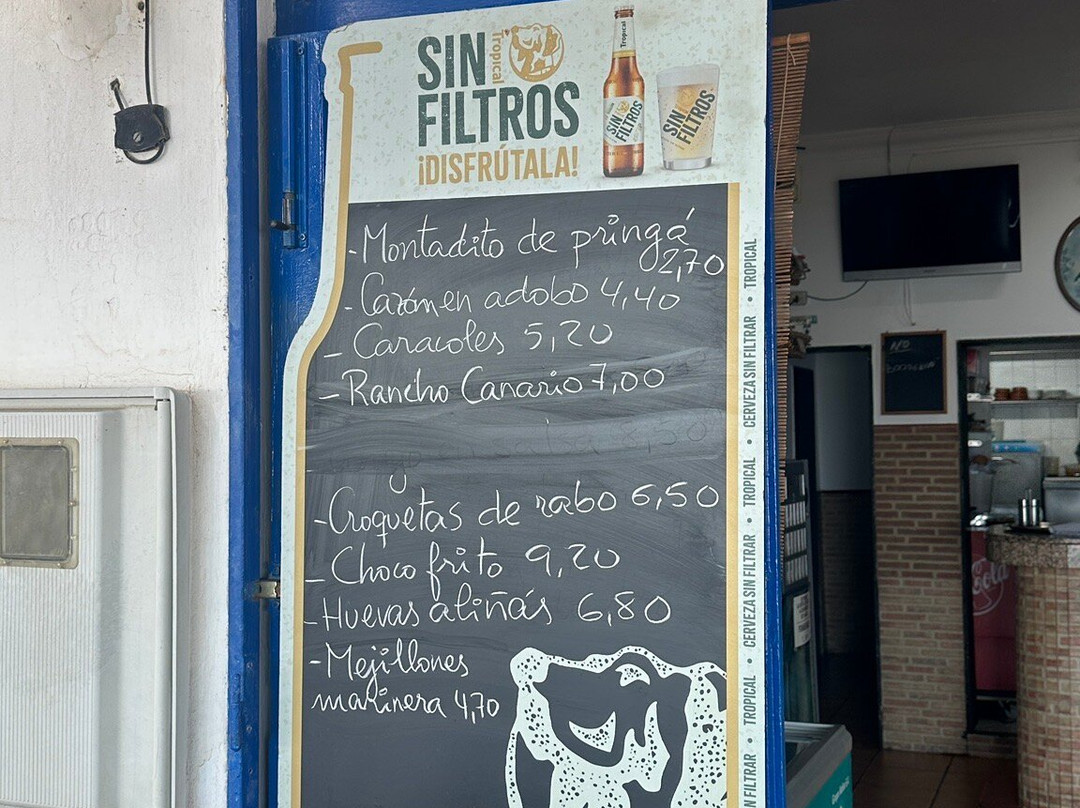 SIN
Tropical
FILTROS
¡DISFRÚTALA!
Tropical
SIN
FILTROS
SIN
FILTROS
- Montadito de pringá
2,70
- Cazón en adobo 4,40
- Caracoles 5,20
- Rancho Canario 7,00
8,50
- Croquetas de rabo 6,50
- Choco frito 9,20
- Huevas aliñás 6,80
- Mejillones
marinera 4,70
N FILTRAR • TROPICAL • CERVEZA SIN FILTRAR • TROPICAL • CERVEZA SIN FILTRAR • TROPICAL
NO
Cola